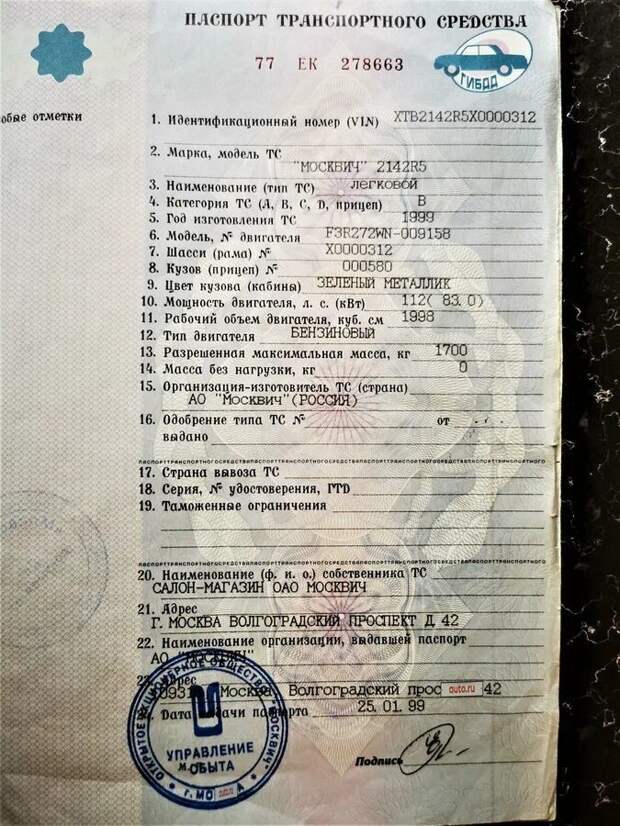 ПАСПОРТ ТРАНСПОРТНОГО СРЕДСТВА
77 ЕК 278663
ГИБДД
обые отметки
1. Идентификационный номер (VIN) XTB2142R5X0000312
2. Марка, модель ТС
"МОСКВИЧ" 2142R5
3. Наименование (тип ТС) легковой
4. Категория ТС (А, В, С, D, прицеп) В
5. Год изготовления ТС 1999
6. Модель, № двигателя F3R272WN-009158
7. Шасси (рама) № X0000312
8. Кузов (прицеп) № 000580
9. Цвет кузова (кабины) ЗЕЛЕНЫЙ МЕТАЛЛИК
10. Мощность двигателя, л. с. (кВт) 112( 83.0)
11. Рабочий объем двигателя, куб. см 1998
12. Тип двигателя БЕНЗИНОВЫЙ
13. Разрешенная максимальная масса, кг 1700
14. Масса без нагрузки, кг 0
15. Организация-изготовитель ТС (страна)
АО "Москвич"(РОССИЯ)
16. Одобрение типа ТС № от . .
выдано
17. Страна вывоза ТС
18. Серия, № удостоверения, ГТD
19. Таможенные ограничения
20. Наименование (ф. и. о.) собственника ТС
САЛОН-МАГАЗИН ОАО МОСКВИЧ
21. Адрес
Г. МОСКВА ВОЛГОГРАДСКИЙ ПРОСПЕКТ Д. 42
22. Наименование организации, выдавшей паспорт
АО "МОСКВИЧ"
23. Адрес
Москва Волгоградский прос auto.ru 42
24. Дата выдачи паспорта 25.01.99
Подпись
М.
ОТКРЫТОЕ АКЦИОНЕРНОЕ ОБЩЕСТВО "МОСКВИЧ"
УПРАВЛЕНИЕ
СБЫТА